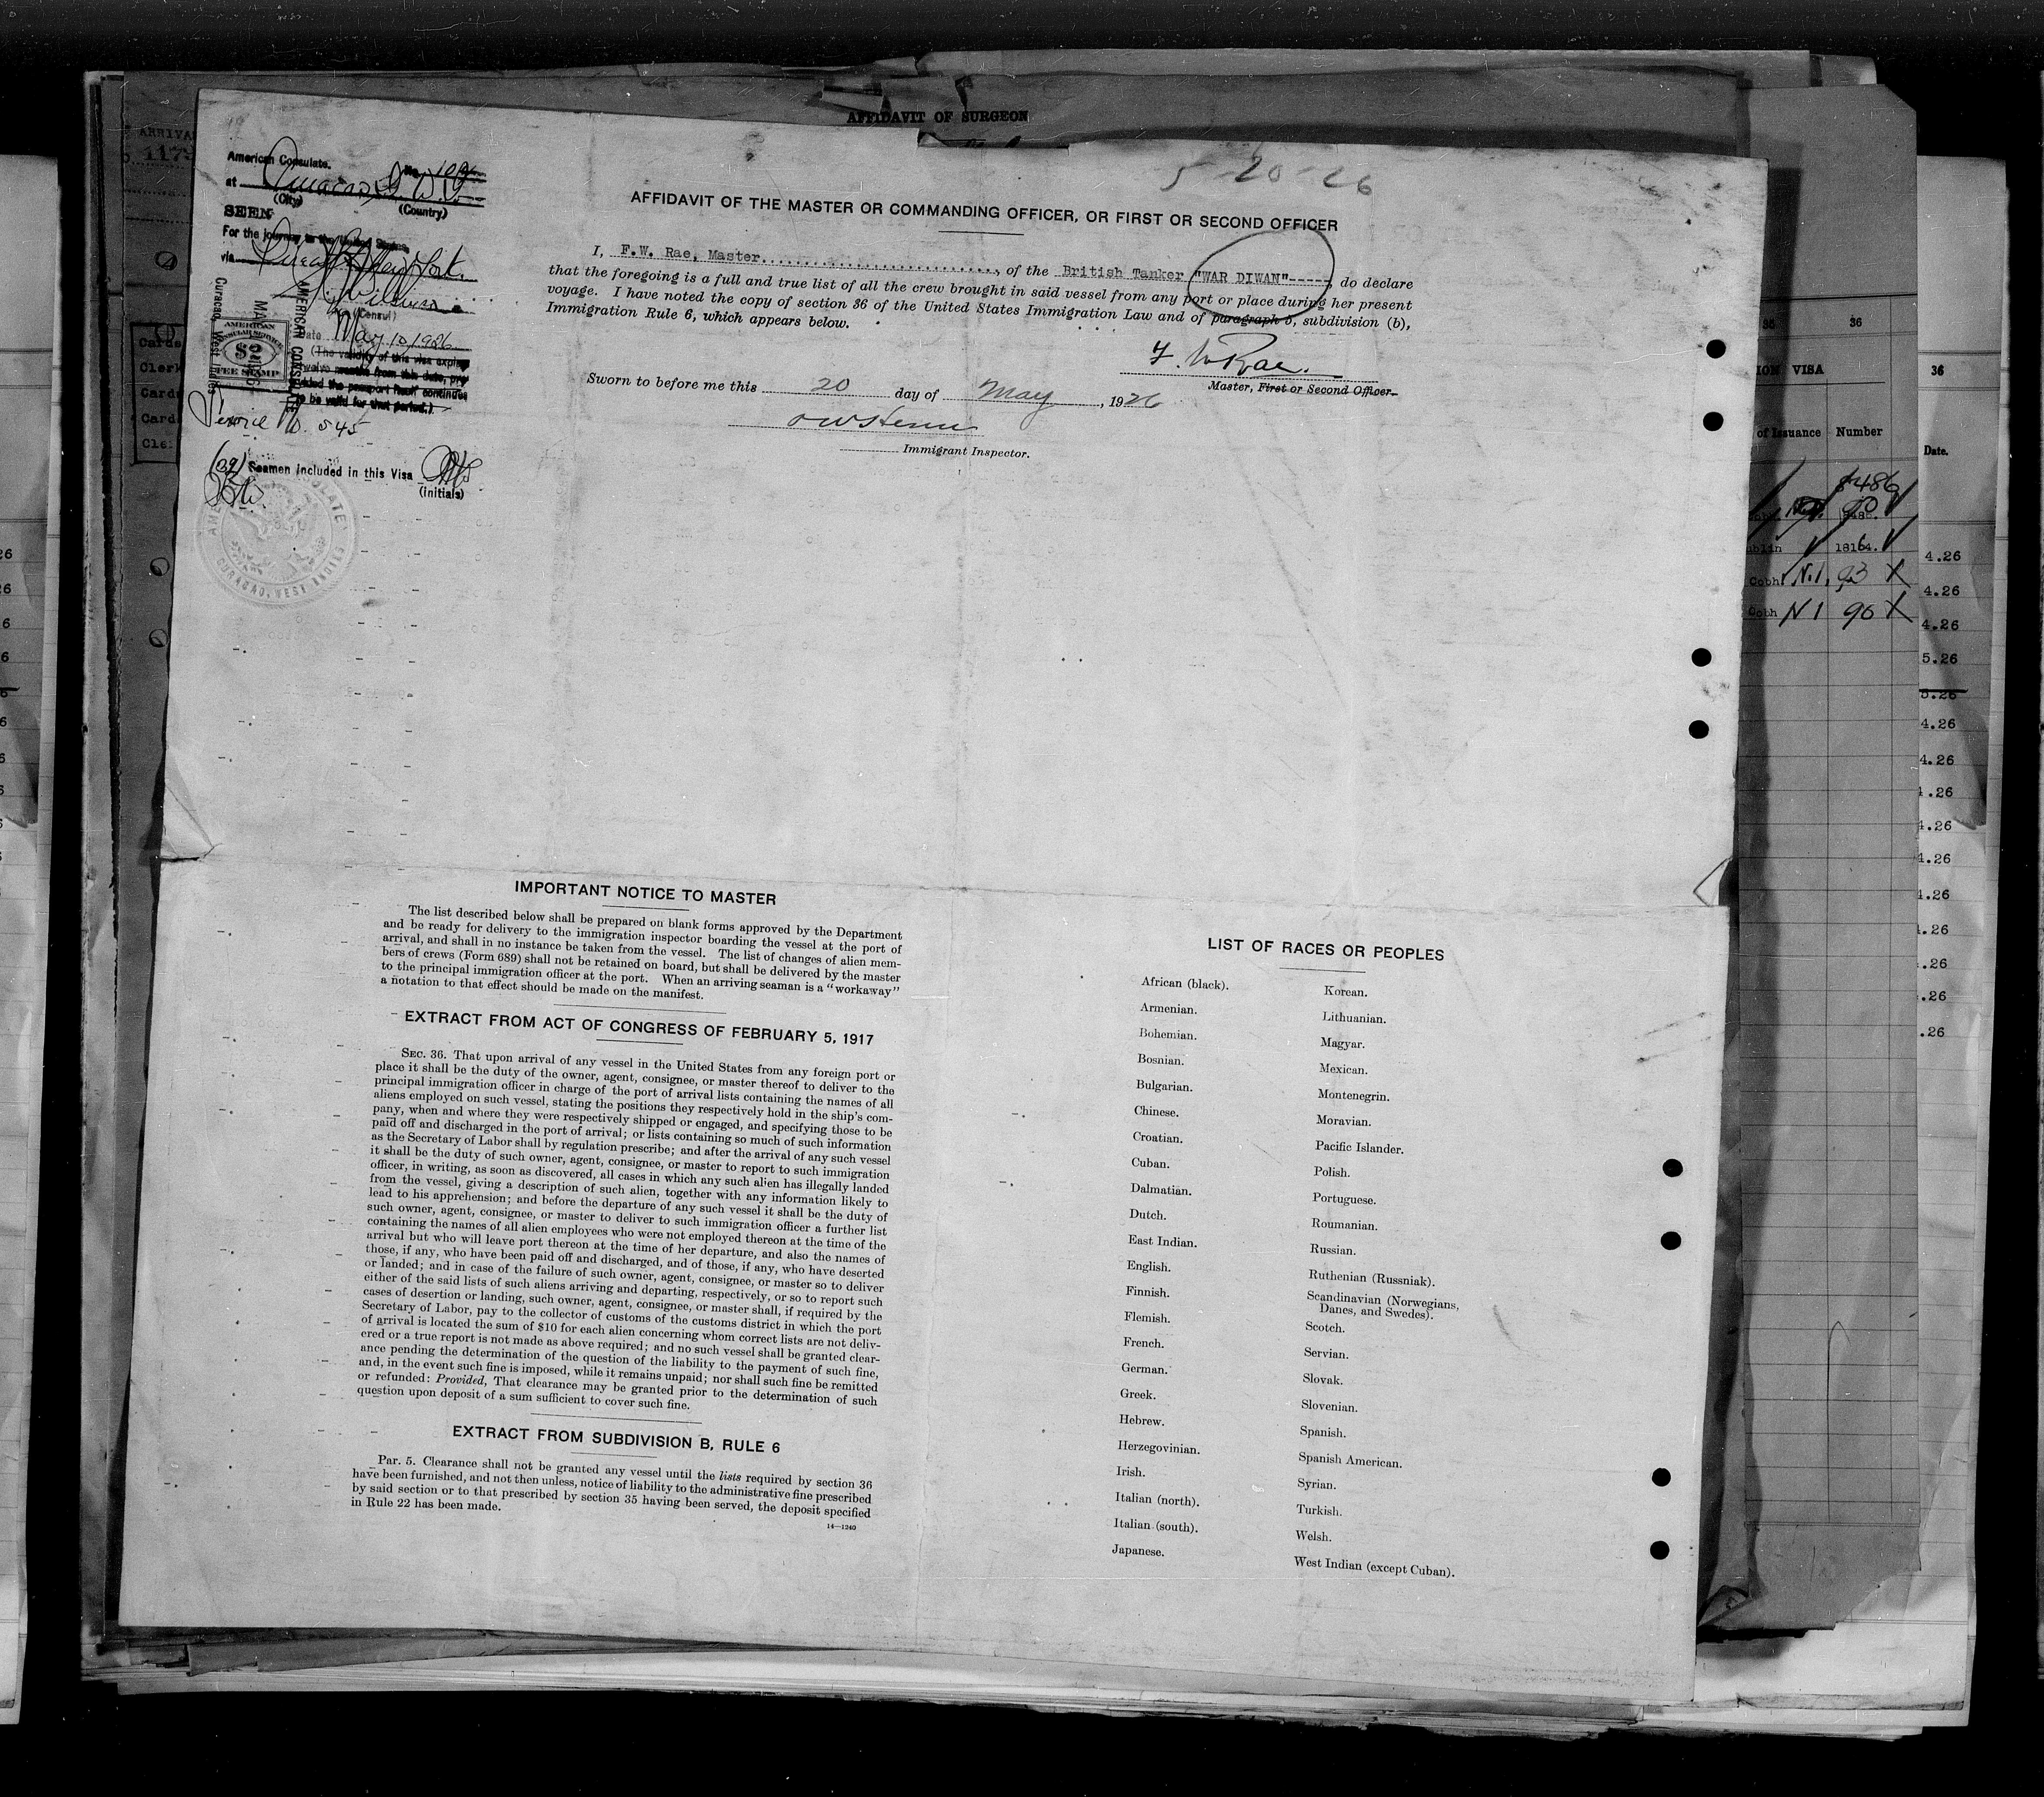 AFFIDAVIT OF SURGEON
ARRIVA
1179
5-20-26
American Consulate.
No.
at Curacao D.W.I.
(City) (Country)
SEEN
For the journey to the United States,
via Direct New York.
(Consul)
AMERICAN CONSULATE
Curacao, West Indies
AMERICAN
CONSULAR SERVICE
$2
FEE STAMP
Date May 10, 1926
(The validity of this visa expires
twelve months from this date, pro-
vided the passport itself continues
to be valid for that period.)
Service No. 545
(39) Seamen included in this Visa
(initials)
AMERICAN CONSULATE
CURACAO, WEST INDIES
AFFIDAVIT OF THE MASTER OR COMMANDING OFFICER, OR FIRST OR SECOND OFFICER
I, F.W. Rae, Master, of the British Tanker "WAR DIWAN"-----, do declare
that the foregoing is a full and true list of all the crew brought in said vessel from any port or place during her present
voyage. I have noted the copy of section 36 of the United States Immigration Law and of paragraph 5, subdivision (b),
Immigration Rule 6, which appears below.
F. W Rae.
Master, First or Second Officer.
Sworn to before me this 20 day of May, 1926
Immigrant Inspector.
IMPORTANT NOTICE TO MASTER
The list described below shall be prepared on blank forms approved by the Department
and be ready for delivery to the immigration inspector boarding the vessel at the port of
arrival, and shall in no instance be taken from the vessel. The list of changes of alien mem-
bers of crews (Form 689) shall not be retained on board, but shall be delivered by the master
to the principal immigration officer at the port. When an arriving seaman is a "workaway"
a notation to that effect should be made on the manifest.
EXTRACT FROM ACT OF CONGRESS OF FEBRUARY 5, 1917
SEC. 36. That upon arrival of any vessel in the United States from any foreign port or
place it shall be the duty of the owner, agent, consignee, or master thereof to deliver to the
principal immigration officer in charge of the port of arrival lists containing the names of all
aliens employed on such vessel, stating the positions they respectively hold in the ship's com-
pany, when and where they were respectively shipped or engaged, and specifying those to be
paid off and discharged in the port of arrival; or lists containing so much of such information
as the Secretary of Labor shall by regulation prescribe; and after the arrival of any such vessel
it shall be the duty of such owner, agent, consignee, or master to report to such immigration
officer, in writing, as soon as discovered, all cases in which any such alien has illegally landed
from the vessel, giving a description of such alien, together with any information likely to
lead to his apprehension; and before the departure of any such vessel it shall be the duty of
such owner, agent, consignee, or master to deliver to such immigration officer a further list
containing the names of all alien employees who were not employed thereon at the time of the
arrival but who will leave port thereon at the time of her departure, and also the names of
those, if any, who have been paid off and discharged, and of those, if any, who have deserted
or landed; and in case of the failure of such owner, agent, consignee, or master so to deliver
either of the said lists of such aliens arriving and departing, respectively, or so to report such
cases of desertion or landing, such owner, agent, consignee, or master shall, if required by the
Secretary of Labor, pay to the collector of customs of the customs district in which the port
of arrival is located the sum of $10 for each alien concerning whom correct lists are not deliv-
ered or a true report is not made as above required; and no such vessel shall be granted clear-
ance pending the determination of the question of the liability to the payment of such fine,
and, in the event such fine is imposed, while it remains unpaid; nor shall such fine be remitted
or refunded: Provided, That clearance may be granted prior to the determination of such
question upon deposit of a sum sufficient to cover such fine.
EXTRACT FROM SUBDIVISION B, RULE 6
Par. 5. Clearance shall not be granted any vessel until the lists required by section 36
have been furnished, and not then unless, notice of liability to the administrative fine prescribed
by said section or to that prescribed by section 35 having been served, the deposit specified
in Rule 22 has been made.
14—1240
LIST OF RACES OR PEOPLES
African (black).
Armenian.
Bohemian.
Bosnian.
Bulgarian.
Chinese.
Croatian.
Cuban.
Dalmatian.
Dutch.
East Indian.
English.
Finnish.
Flemish.
French.
German.
Greek.
Hebrew.
Herzegovinian.
Irish.
Italian (north).
Italian (south).
Japanese.
Korean.
Lithuanian.
Magyar.
Mexican.
Montenegrin.
Moravian.
Pacific Islander.
Polish.
Portuguese.
Roumanian.
Russian.
Ruthenian (Russniak).
Scandinavian (Norwegians,
Danes, and Swedes).
Scotch.
Servian.
Slovak.
Slovenian.
Spanish.
Spanish American.
Syrian.
Turkish.
Welsh.
West Indian (except Cuban).
36
ION VISA
of Issuance Number
8486
18164.
Cobh N.1, 93 X
Cobh N1 90 X
36
Date.
4.26
4.26
4.26
5.26
5.26
4.26
4.26
4.26
4.26
4.26
4.26
4.26
.26
.26
.26